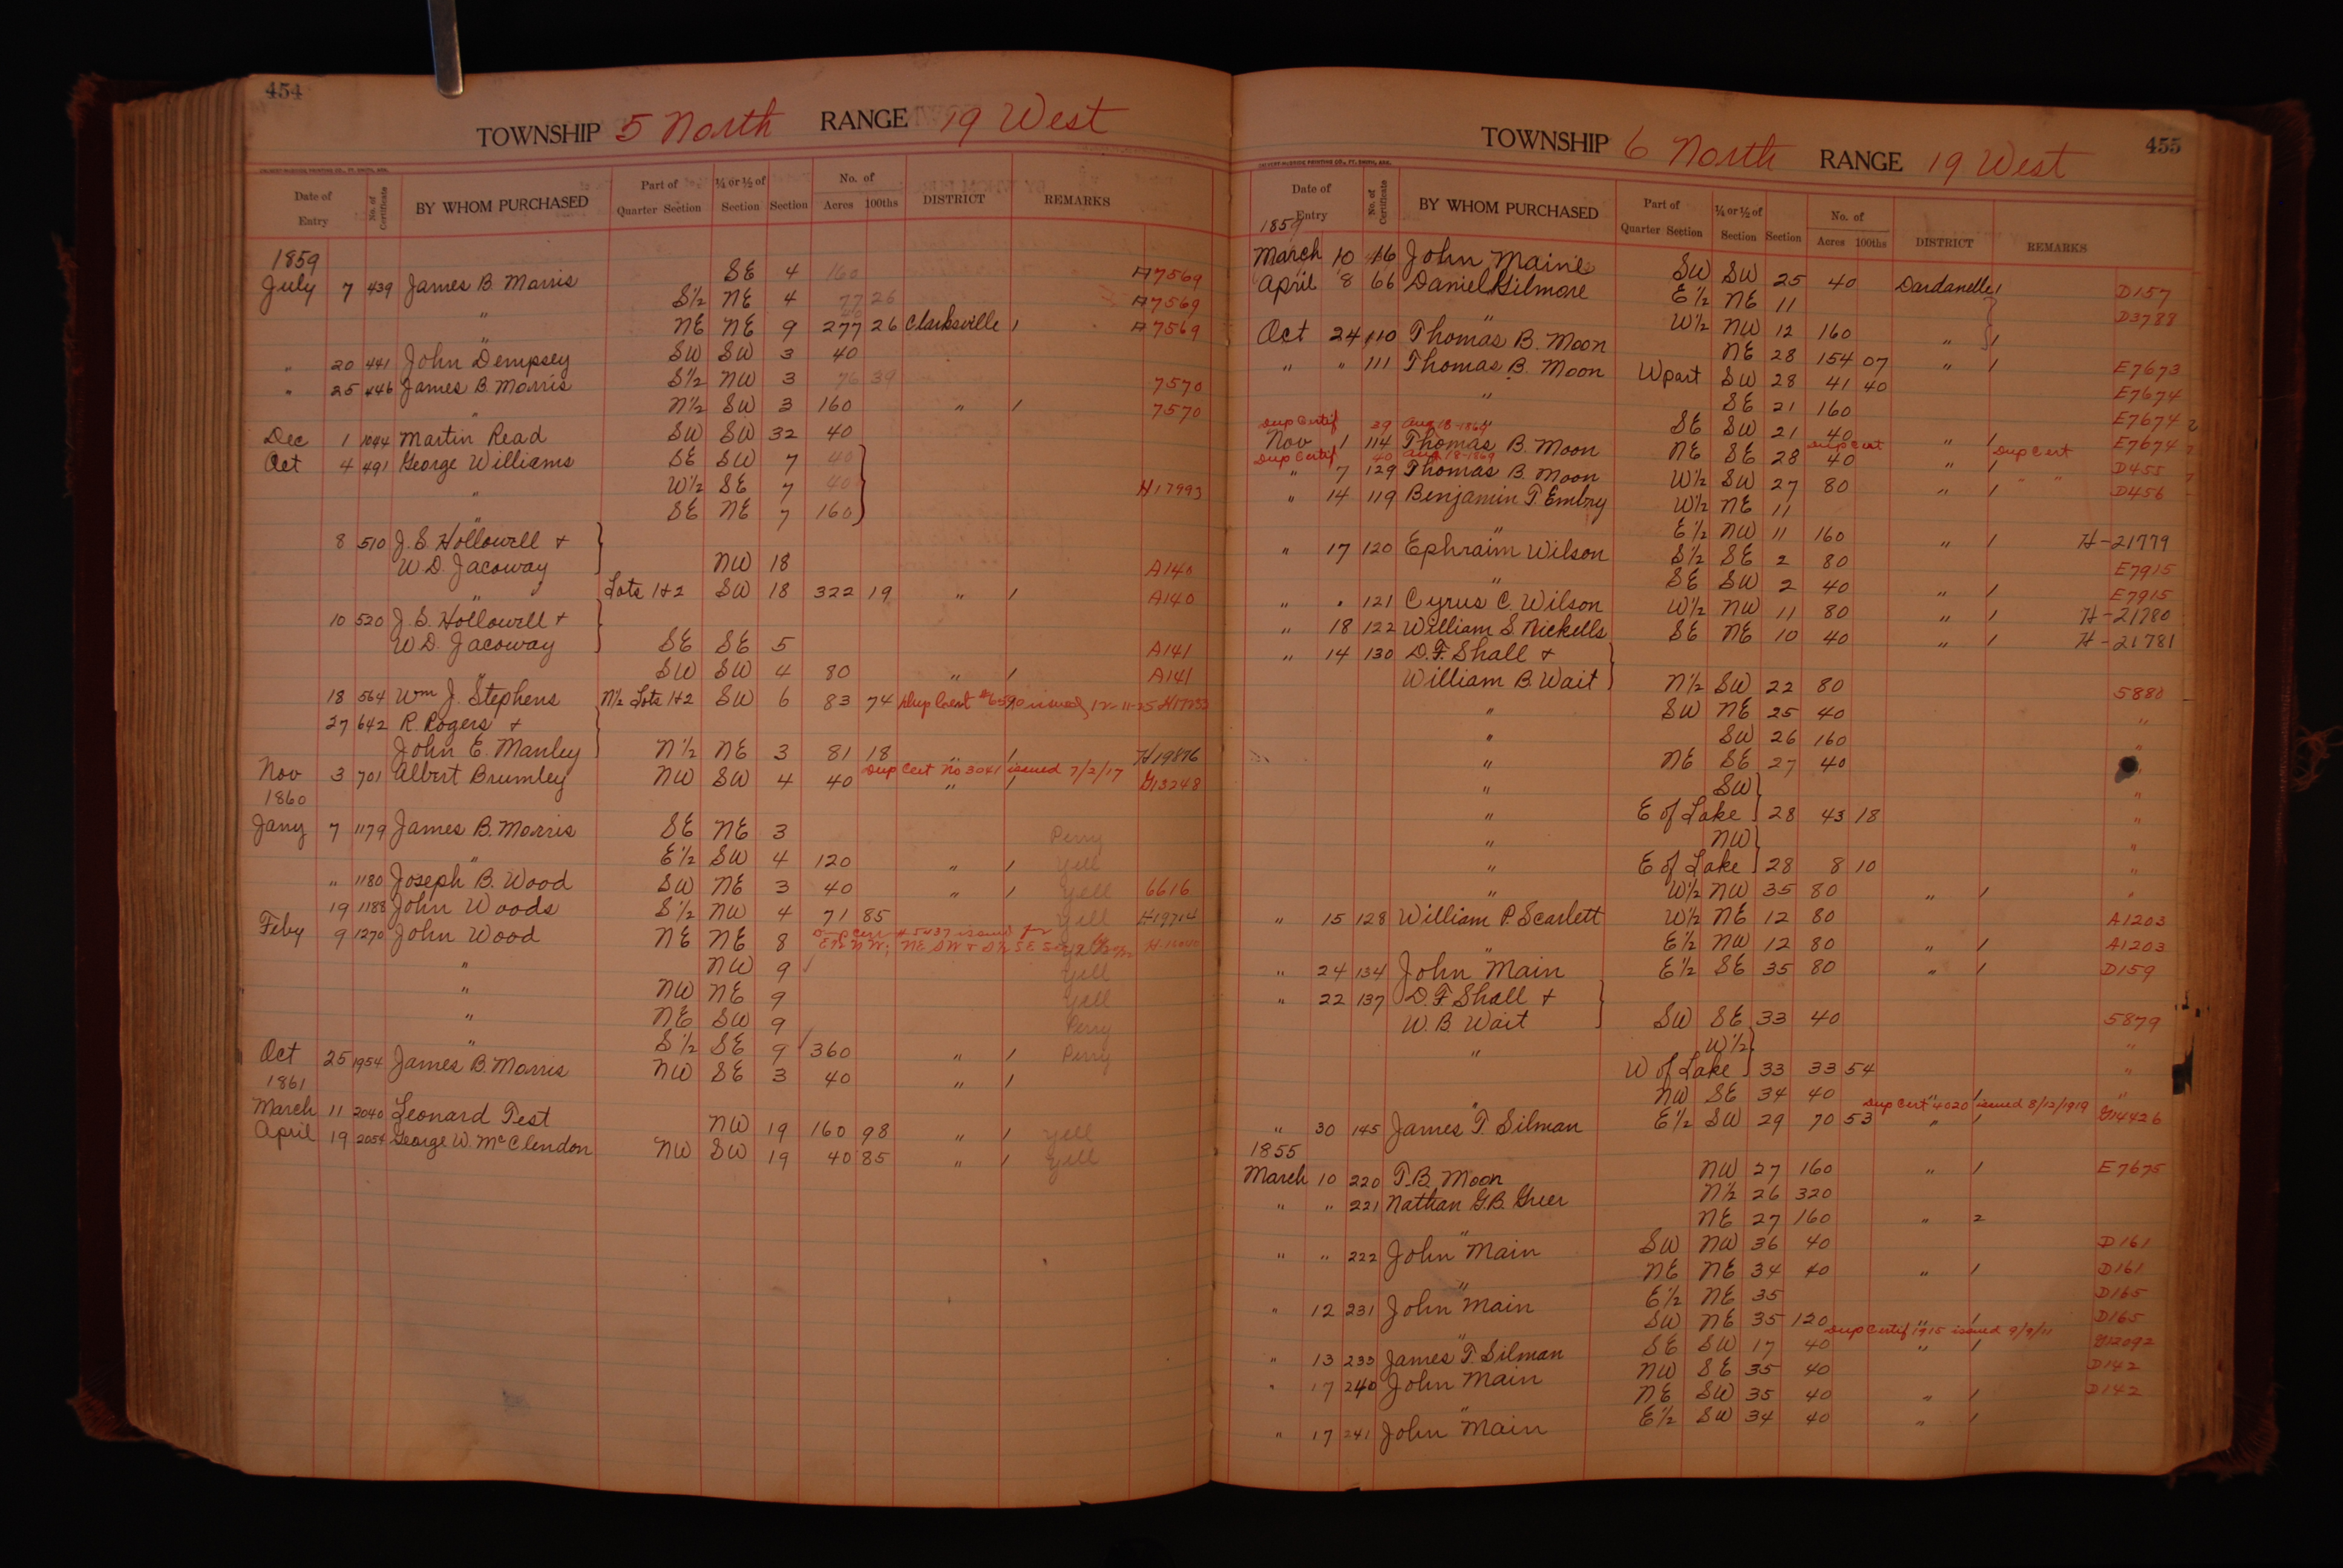 454
TOWNSHIP 5 North RANGE 19 West
CALVERT-McBRIDE PRINTING CO., FT. SMITH, ARK.
Date of Entry No. of Certificate BY WHOM PURCHASED Part of Quarter Section ¼ or ½ of Section Section No. of Acres 100ths DISTRICT REMARKS
1859
July 7 439 James B. Morris SE 4 160 A7569
" S½ NE 4 77 26 A7569
" NE NE 9 277 26 Clarksville 1 A7569
" 20 441 John Dempsey SW SW 3 40
" 25 446 James B. Morris S½ NW 3 76 39 7570
" N½ SW 3 160 " 1 7570
Dec 1 1044 Martin Read SW SW 32 40
Oct 4 491 George Williams SE SW 7 40
" W½ SE 7 40 H17993
" SE NE 7 160
8 510 J. S. Hollowell +
W. D. Jacoway NW 18 A140
" Lots 1+2 SW 18 322 19 " 1 A140
10 520 J. S. Hollowell +
W. D. Jacoway SE SE 5 A141
" SW SW 4 80 " 1 A141
18 564 Wm J. Stephens N½ Lots 1+2 SW 6 83 74 Dup Cert #6590 issued 12-11-25
27 642 R. Rogers +
John E. Manley N½ NE 3 81 18 " 1 H19876
Dup Cert No 3041 issued 7/2/17
Nov 3 701 Albert Brumley NW SW 4 40 " 1 G13248
1860
Jany 7 1179 James B. Morris SE NE 3 Perry
" E½ SW 4 120 " 1 Yell
" 1180 Joseph B. Wood SW NE 3 40 " 1 Yell 6616
19 1188 John Woods S½ NW 4 71 85 Yell H19714
Dup Cert #5437 issued for
Feby 9 1270 John Wood NE NE 8
" NW 9 Yell
" NW NE 9 Yell
" NE SW 9 Perry
" S½ SE 9 360 " 1 Perry
Oct 25 1954 James B. Morris NW SE 3 40 " 1
1861
March 11 2040 Leonard Test NW 19 160 98 " 1 Yell
April 19 2054 George W. McClendon NW SW 19 40 85 " 1 Yell
455
TOWNSHIP 6 North RANGE 19 West
CALVERT-McBRIDE PRINTING CO., FT. SMITH, ARK.
Date of Entry No. of Certificate BY WHOM PURCHASED Part of Quarter Section ¼ or ½ of Section Section No. of Acres 100ths DISTRICT REMARKS
1859
March 10 46 John Maine SW SW 25 40 Dardanelle 1 D157
April 8 66 Daniel Gilmore E½ NE 11 D3788
" W½ NW 12 160 " 1
Oct 24 110 Thomas B. Moon NE 28 154 07 " 1 E7673
" " 111 Thomas B. Moon W part SW 28 41 40 E7674
" SE 21 160 E7674
" SE SW 21 40 " 1 E7674
Dup Certif 39 Aug 18-1869 Dup Cert
Nov 1 114 Thomas B. Moon NE SE 28 40 " 1 Dup Cert D455
Dup Certif 40 Aug 18-1869
" 7 129 Thomas B. Moon W½ SW 27 80 " 1 " " D456
" 14 119 Benjamin T. Embry W½ NE 11
" E½ NW 11 160 " 1 H-21779
" 17 120 Ephraim Wilson S½ SE 2 80 E7915
" SE SW 2 40 " 1 E7915
" " 121 Cyrus C. Wilson W½ NW 11 80 " 1 H-21780
" 18 122 William S. Nickells SE NE 10 40 " 1 H-21781
" 14 130 D. F. Shall +
William B. Wait N½ SW 22 80 5880
" SW NE 25 40 "
" SW 26 160 "
" NE SE 27 40 "
" SW "
" E of Lake 28 43 18 "
" NW "
" E of Lake 28 8 10 "
" W½ NW 35 80 " 1 "
" 15 128 William P. Scarlett W½ NE 12 80 A1203
" E½ NW 12 80 " 1 A1203
" 24 134 John Main E½ SE 35 80 " 1 D159
" 22 137 D. F. Shall +
W. B. Wait SW SE 33 40 5879
" W½ "
W of Lake 33 33 54 "
" NW SE 34 40 " 1 "
Dup Cert 4020 issued 8/12/1919
" 30 145 James T. Silman E½ SW 29 70 53 " 1 G14426
1855
March 10 220 T. B. Moon NW 27 160 " 1 E7675
" " 221 Nathan G. B. Greer N½ 26 320
" NE 27 160 " 2
" " 222 John Main SW NW 36 40 D161
" NE NE 34 40 " 1 D161
" 12 231 John Main E½ NE 35 D165
" SW NE 35 120 " 1 D165
Dup Certif 1915 issued 9/9/11
" 13 233 James T. Silman SE SW 17 40 " 1 G12092
" 17 240 John Main NW SE 35 40 D142
" NE SW 35 40 " 1 D142
" 17 241 John Main E½ SW 34 40 " 1